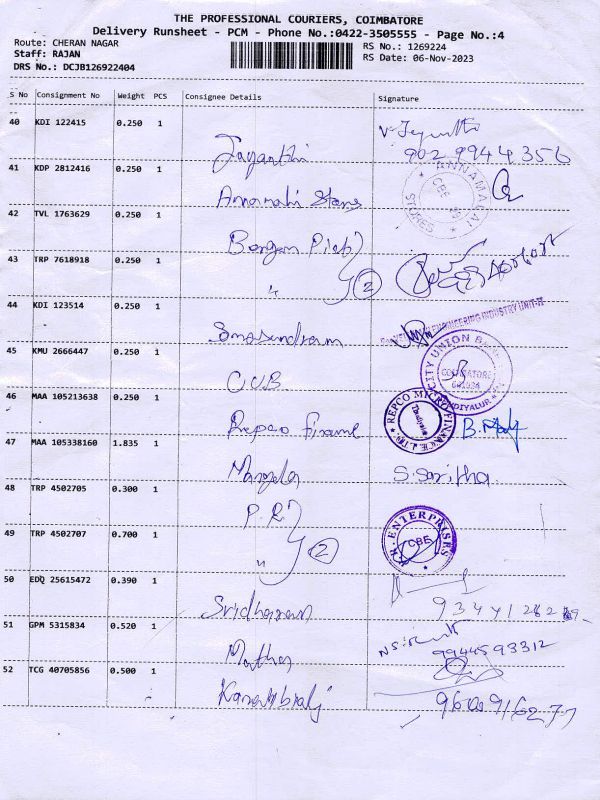 THE PROFESSIONAL COURIERS, COIMBATORE
Delivery Runsheet - PCM - Phone No.:0422-3505555 - Page No.:4
Route: CHERAN NAGAR
RS No.: 1269224
Staff: RAJAN
RS Date: 06-Nov-2023
DRS No.: DCJB126922404
S No Consignment No Weight PCS Consignee Details Signature
40 KDI 122415 0.250 1 Jayanthi
902 9944356
41 KDP 2812416 0.250 1 Annamalai Stores
ANNAMALAI STORES CBE
42 TVL 1763629 0.250 1
43 TRP 7618918 0.250 1 " 2
44 KDI 123514 0.250 1 Somasundram
ENGINEERING INDUSTRY UNIT-II
45 KMU 2666447 0.250 1 CUB
CITY UNION BANK COIMBATORE
46 MAA 105213638 0.250 1 Repco Finance
REPCO MICRO FINANCE LTD
47 MAA 105338160 1.835 1 S. Saritha
48 TRP 4502705 0.300 1 P.R
49 TRP 4502707 0.700 1 " 2
ENTERPRISES CBE
50 EDQ 25615472 0.390 1 Sridharan
51 GPM 5315834 0.520 1
9944593312
52 TCG 40705856 0.500 1